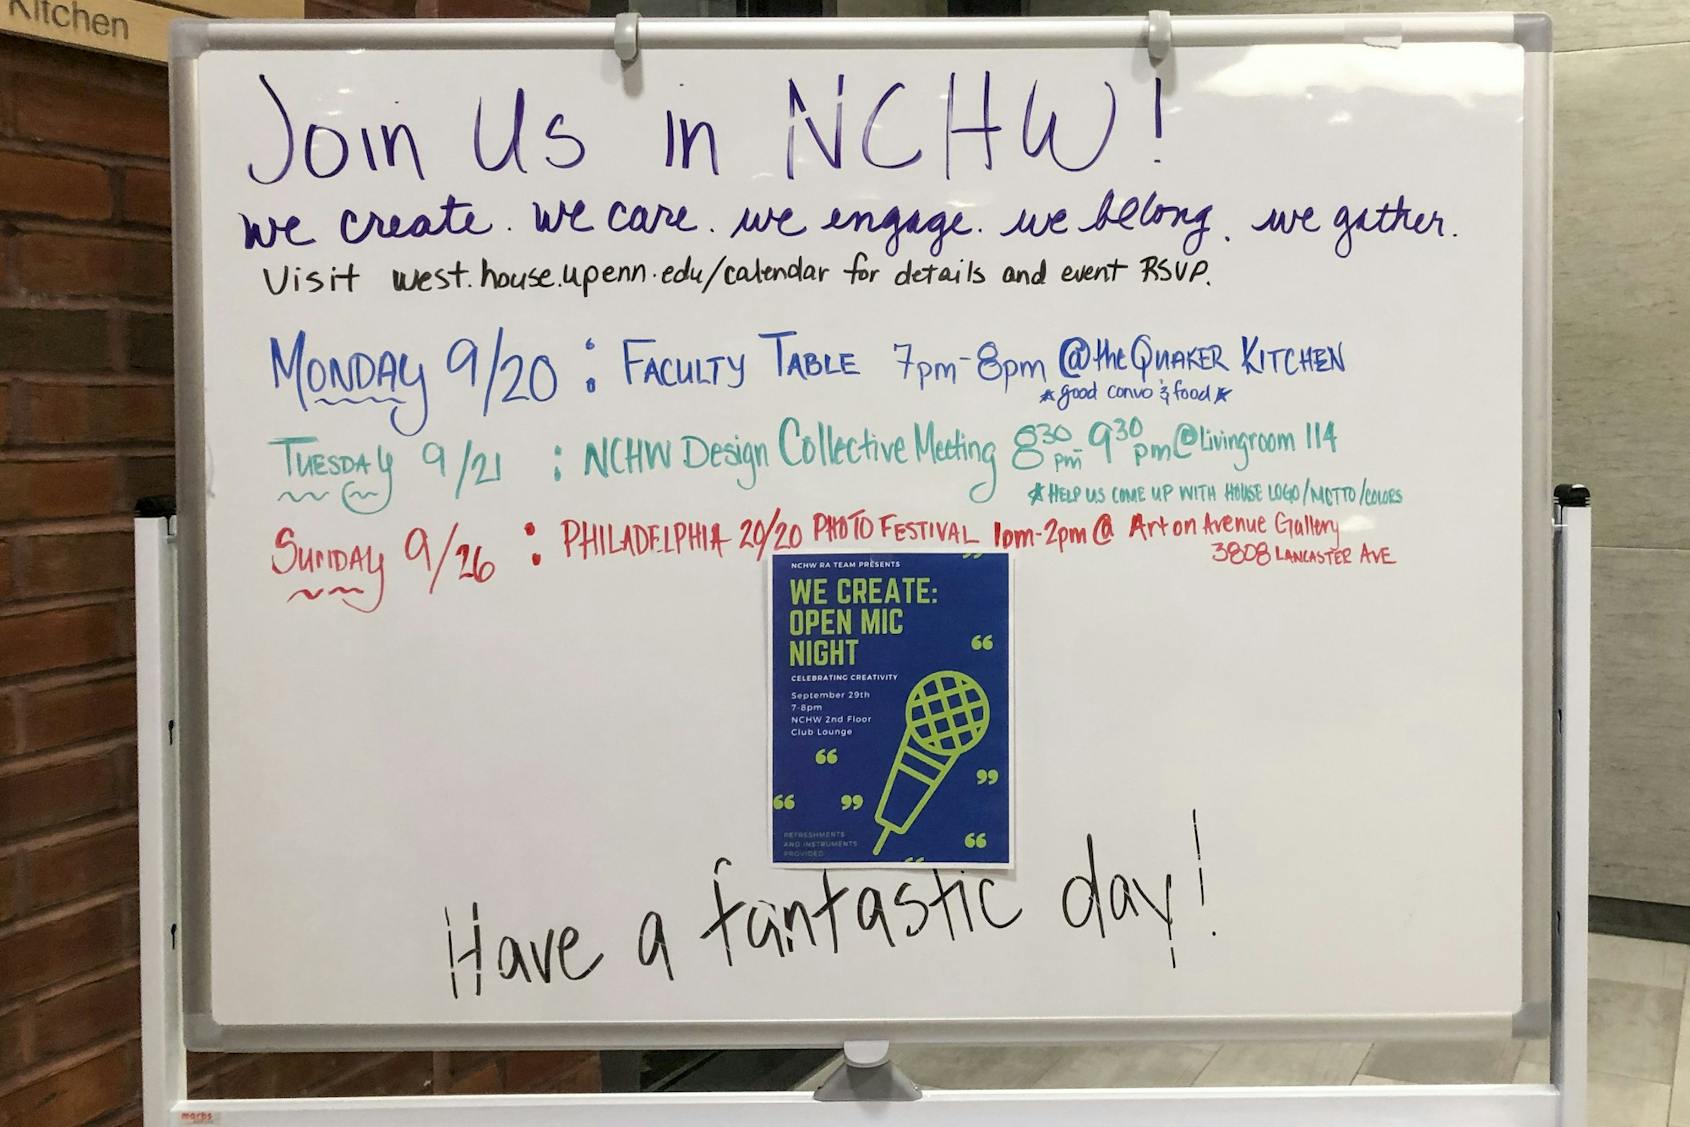 Kitchen
Join Us in NCHW!
we create. we care. we engage. we belong. we gather.
Visit west.house.upenn.edu/calendar for details and event RSVP.
Monday 9/20: Faculty Table 7pm-8pm @the Quaker Kitchen
*good convo & food*
Tuesday 9/21: NCHW Design Collective Meeting 8:30 pm-9:30 pm@Livingroom 114
*HELP US COME UP WITH HOUSE LOGO/MOTTO/COLORS
Sunday 9/26: PHILADELPHIA 20/20 PHOTO FESTIVAL 1pm-2pm@ Art on Avenue Gallery
3808 LANCASTER AVE
NCHW RA TEAM PRESENTS
WE CREATE:
OPEN MIC
NIGHT
CELEBRATING CREATIVITY
September 29th
7-8pm
NCHW 2nd Floor
Club Lounge
REFRESHMENTS
AND INSTRUMENTS
PROVIDED
Have a fantastic day!